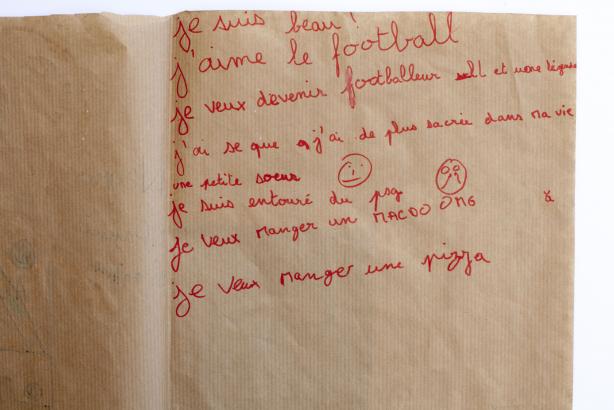 je suis beau !
j'aime le football
je veux devenir footballeur et une légende
j'ai se que j'ai de plus sacrée dans ma vie
une petite soeur
je suis entouré du psg
je veux manger un MACDO OMG
je veux manger une pizza